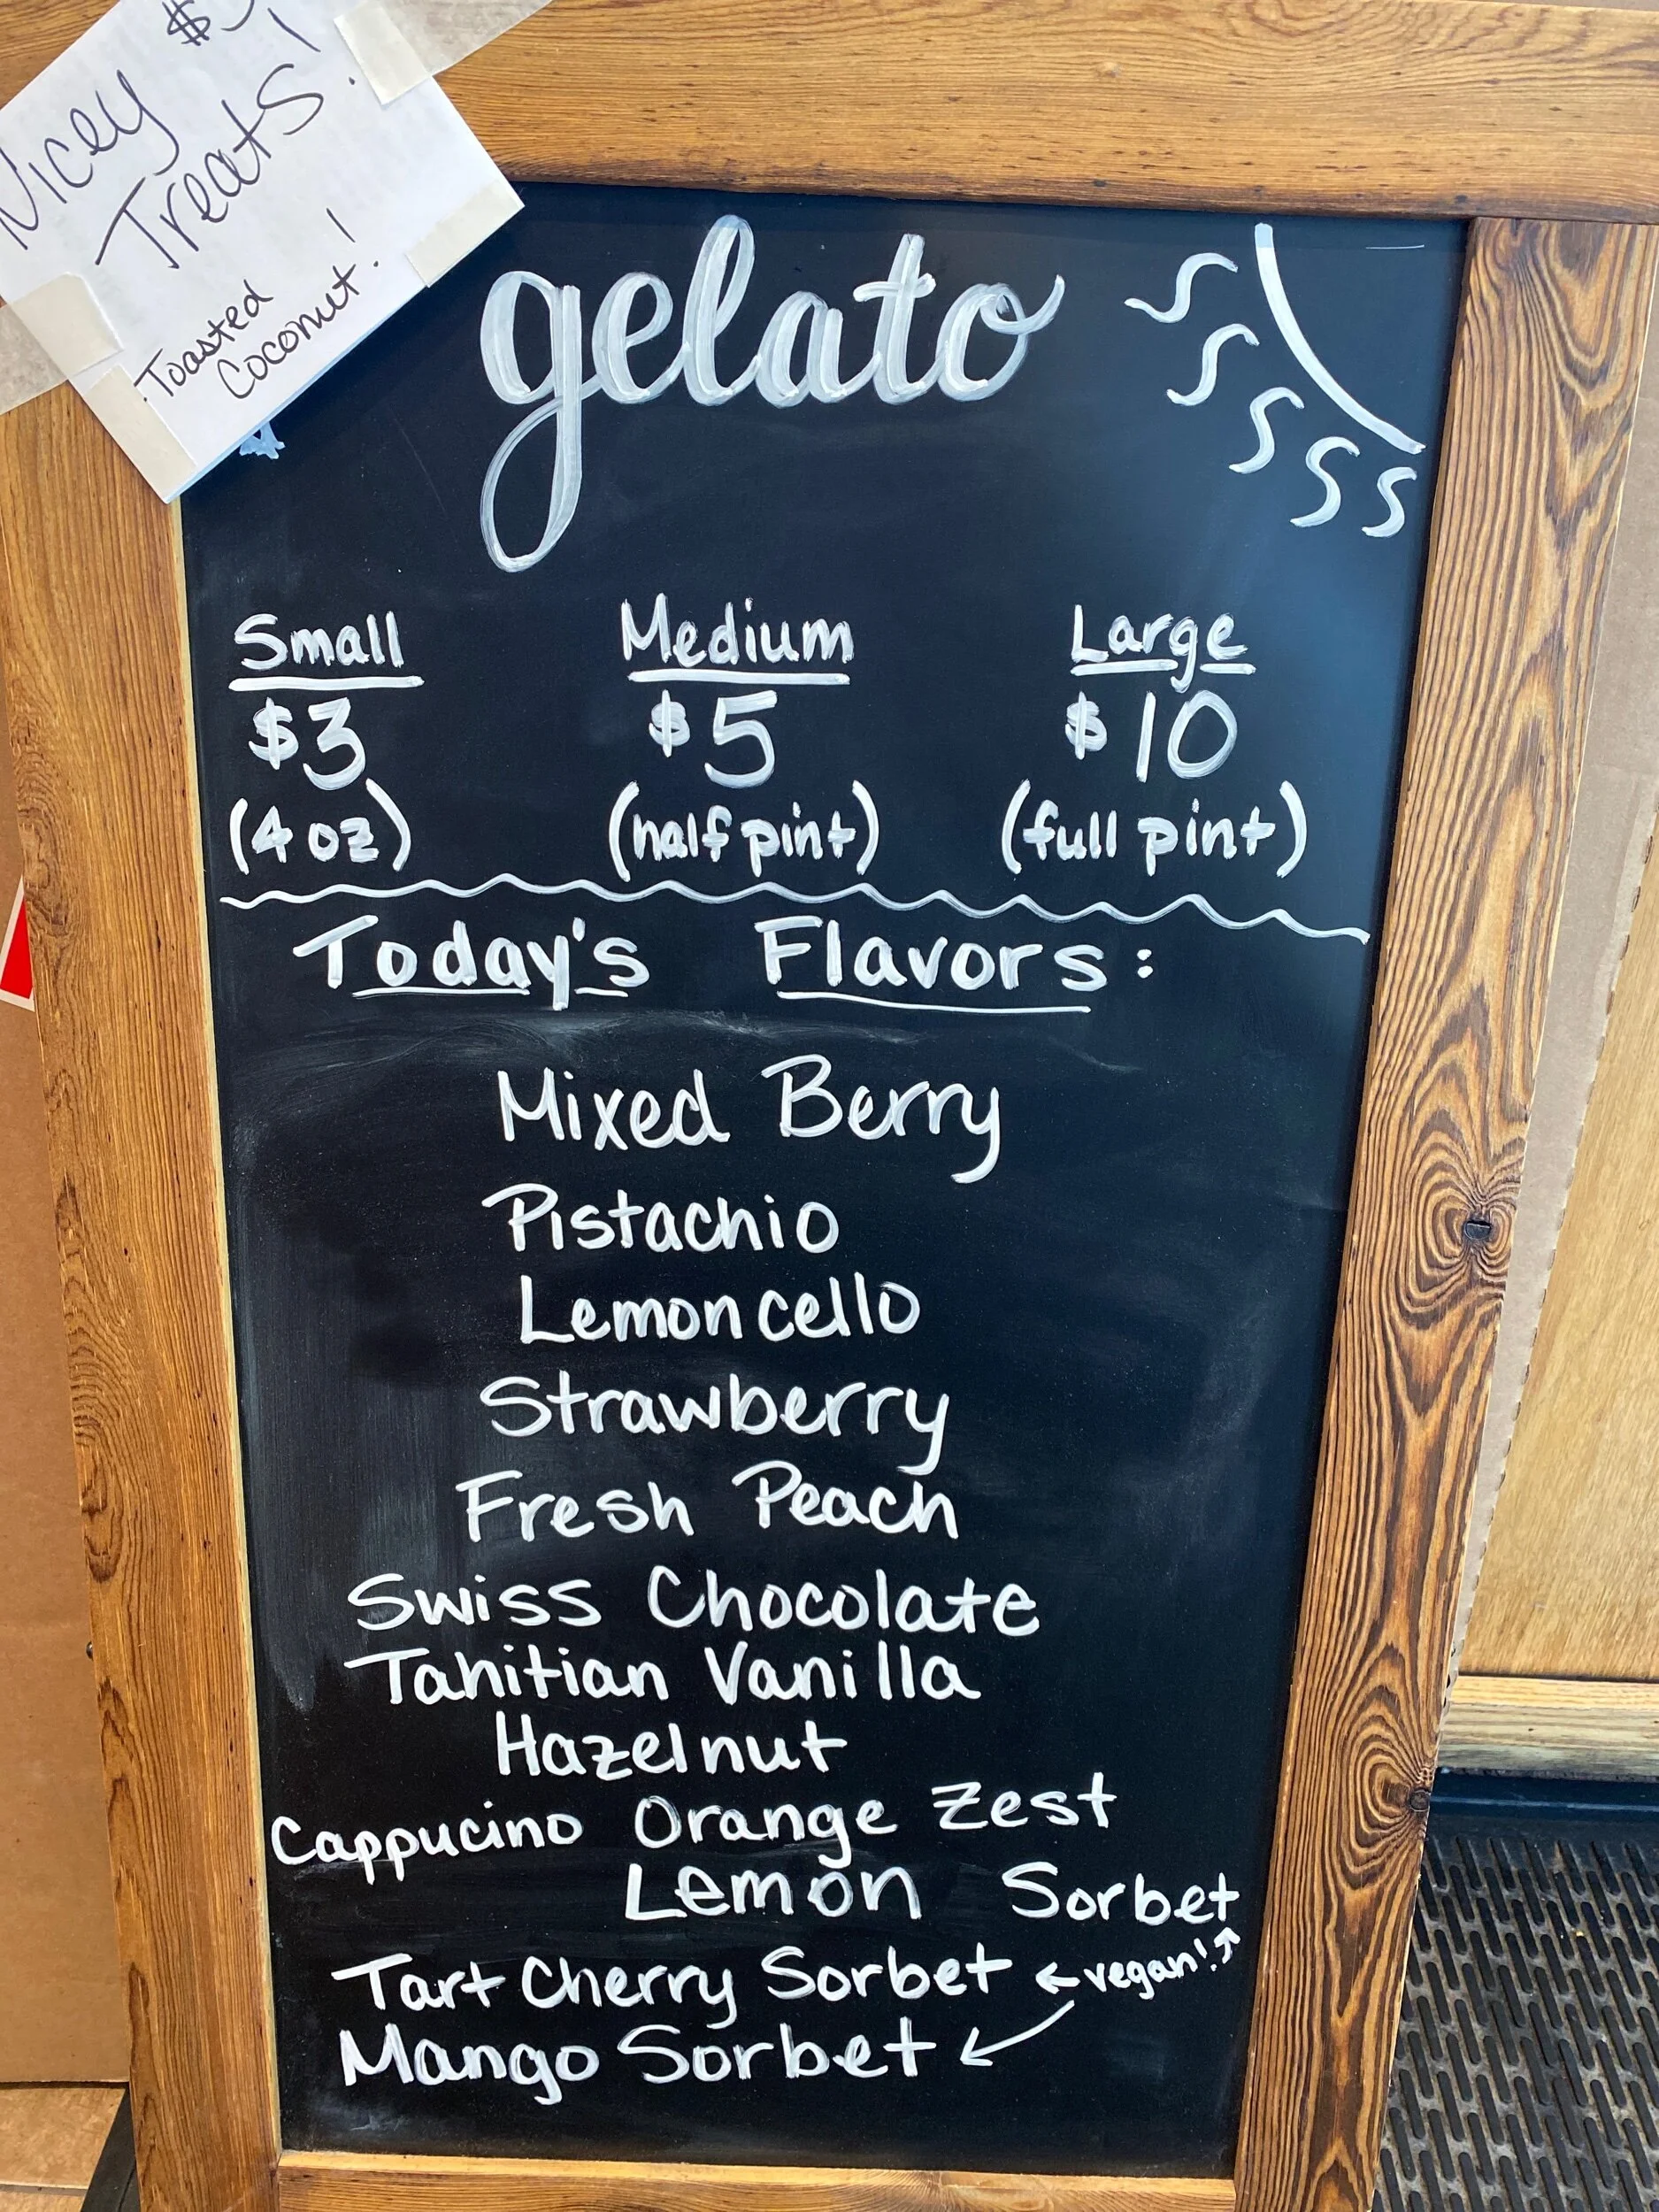 Nicey $5
Treats!
Toasted
Coconut!
gelato
Small Medium Large
$3 $5 $10
(4 oz) (half pint) (full pint)
Today's Flavors:
Mixed Berry
Pistachio
Lemoncello
Strawberry
Fresh Peach
Swiss Chocolate
Tahitian Vanilla
Hazelnut
Cappucino Orange Zest
Lemon Sorbet
Tart Cherry Sorbet ← vegan! ↗
Mango Sorbet ↙